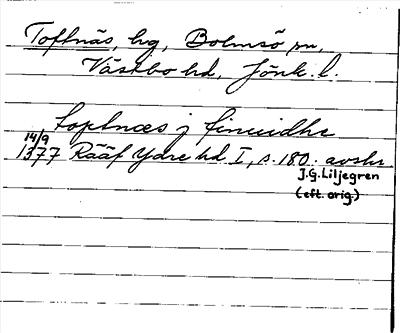 Toftnäs, hg, Bolmsö sn,
Västbo hd, Jönk. l.
Loptnæs j finuidhr
14/9
1377 Rääf Ydre hd I, s. 180. avskr
J.G. Liljegren
(eft. orig.)